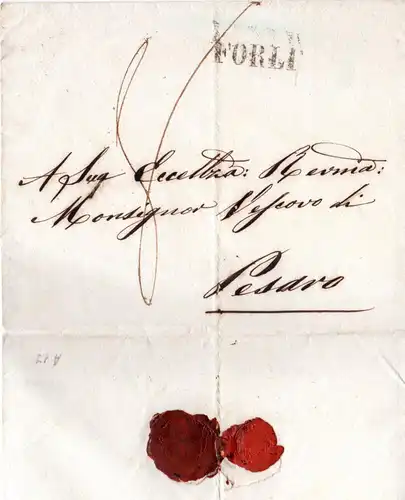 FORLI'
A Sua Eccellza: Revma:
Monsignor Vescovo di
Pesaro